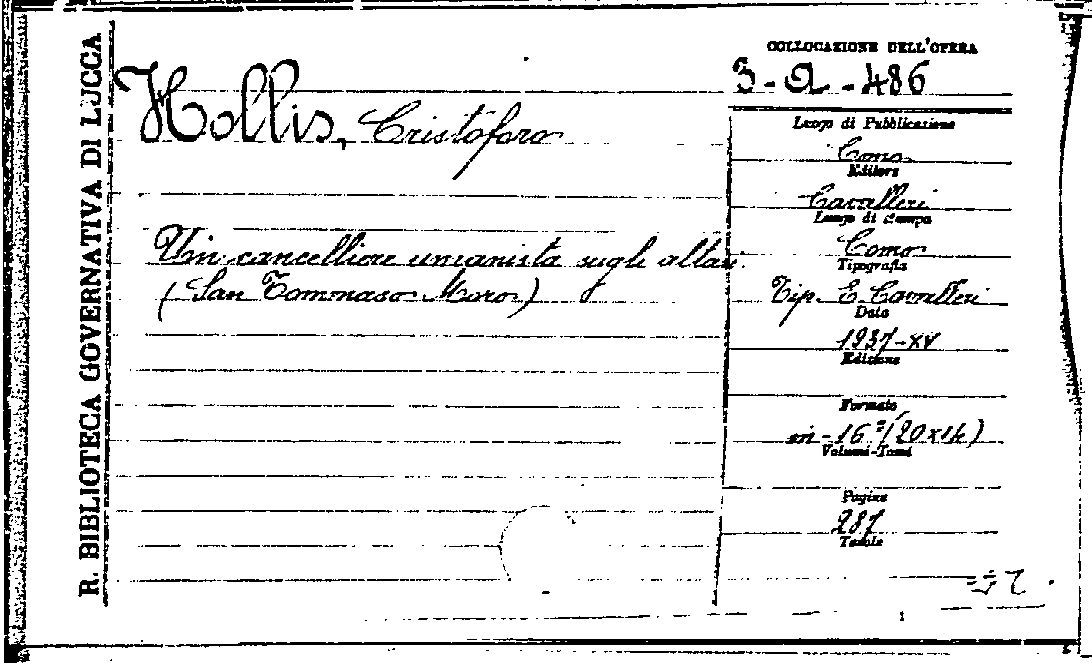 R. BIBLIOTECA GOVERNATIVA DI LUCCA
Hollis, Cristoforo
Un cancelliere umanista sugli altari.
(San Tommaso Moro)
COLLOCAZIONE DELL'OPERA
3-Q-486
Luogo di Pubblicazione
Como
Editore
Cavalleri
Luogo di stampa
Como
Tipografia
Tip. E. Cavalleri
Data
1937-XV
Edizione
Formato
in-16°(20x14)
Volumi-Tomi
Pagine
287
Tavole